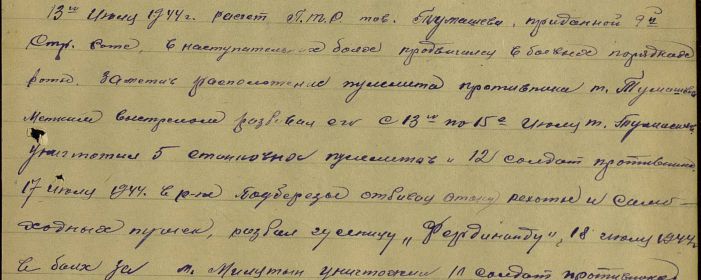 13го Июля 1944г. расчет П.Т.Р. тов. Тумашева, приданной 9й
Стр. роте, в наступательных боях продвигался в боевых порядках
роты. Заметив расположение пулемета противника т. Тумашев
Метким выстрелом разбивал его с 13го по 15е Июля т. Тумашев
уничтожил 5 станковых пулеметов и 12 солдат противника.
17 июля 1944г. в р-не Подберезы отбивая атаку пехоты и само-
ходных пушек, разбил гусеницу „Фердинанду", 18 июля 1944г.
в боях за м. уничтожил 11 солдат противника